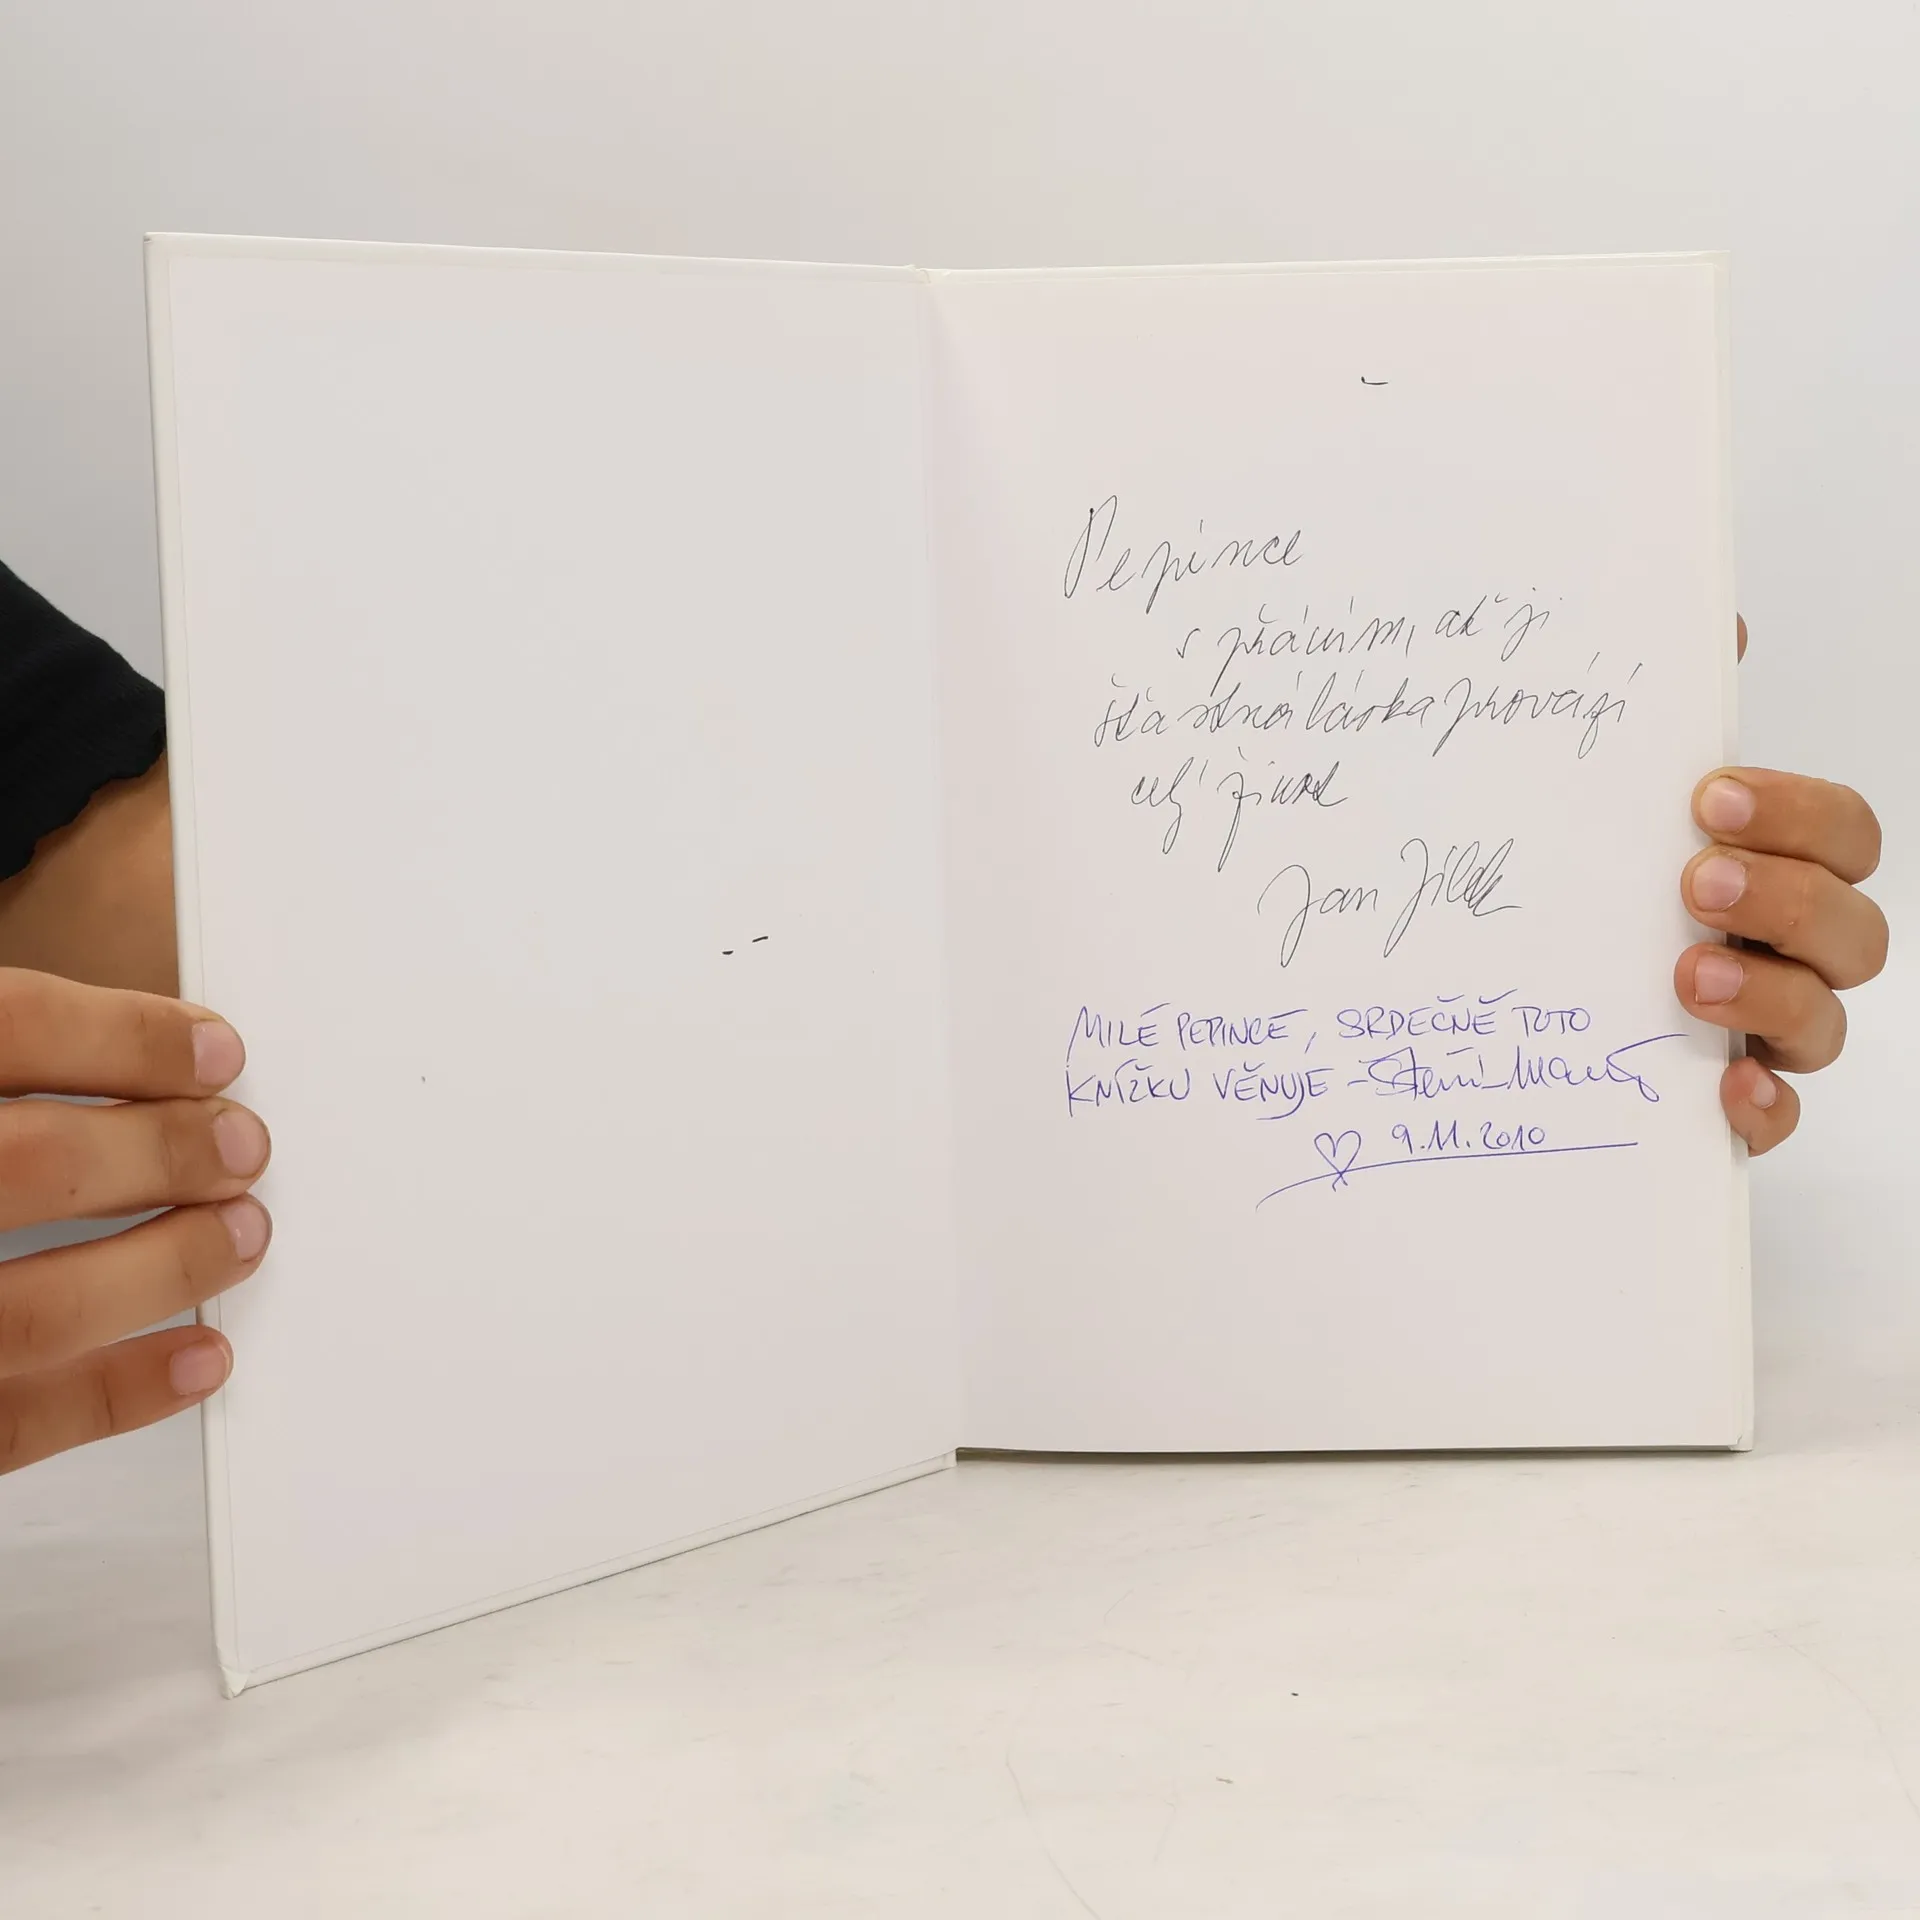 Pepince
s přáním, ať ji
šťastná láska provází
celý život
Jan Jílek
MILÉ PEPINCE, SRDEČNĚ TOTO
KNÍŽKU VĚNUJE –
9.11.2010